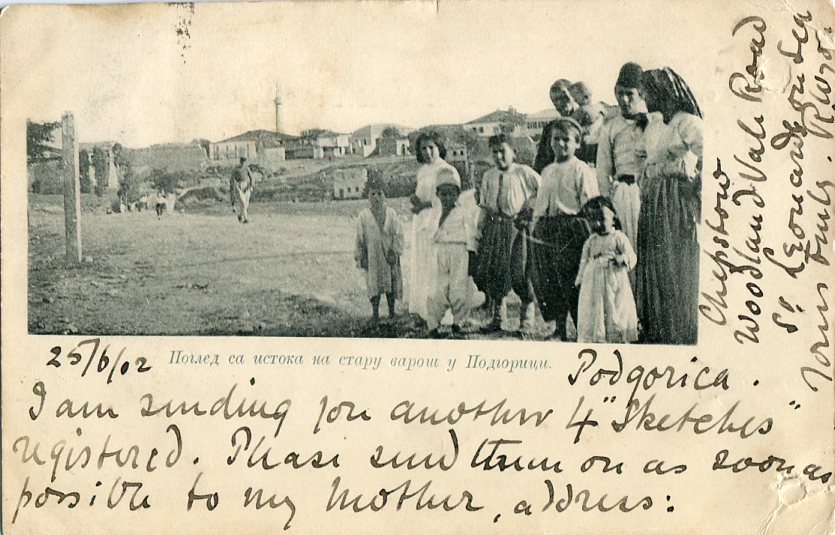 25/6/02
Поглед са истока на стару варош у Подгорици.
Podgorica.
I am sending you another 4 "Sketches"
registered. Please send them on as soon as
possible to my Mother, address:
Chepstow
Woodland Vale Road
St Leonards on Sea
Yours truly